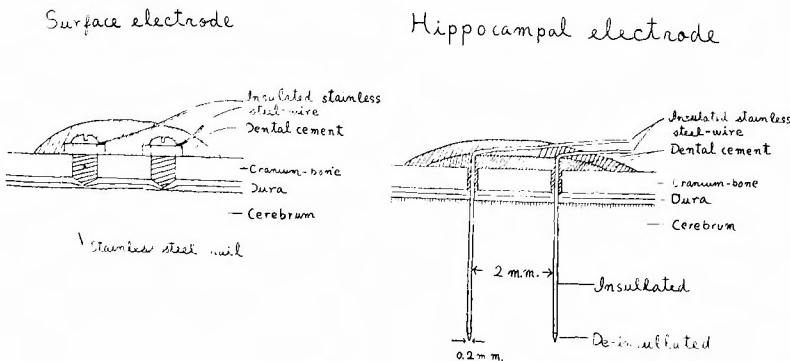 Surface electrode
Insulated stainless
steel-wire
Dental cement
Cranium-bone
Dura
Cerebrum
Stainless steel nail
Hippocampal electrode
Insulated stainless
steel-wire
Dental cement
Cranium-bone
Dura
Cerebrum
2 m.m.
Insullated
De-insullated
0.2 m m.